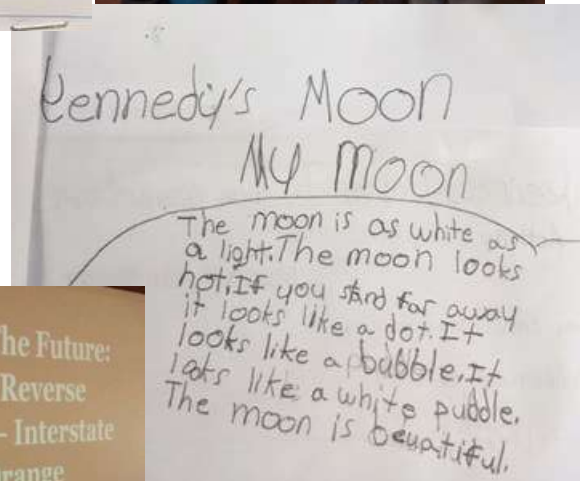 Kennedy's Moon
My Moon
The moon is as white as
a light. The moon looks
hot. If you stand far away
it looks like a dot. It
looks like a bubble. It
looks like a white puddle.
The moon is beuatiful.
he Future:
Reverse
- Interstate
range